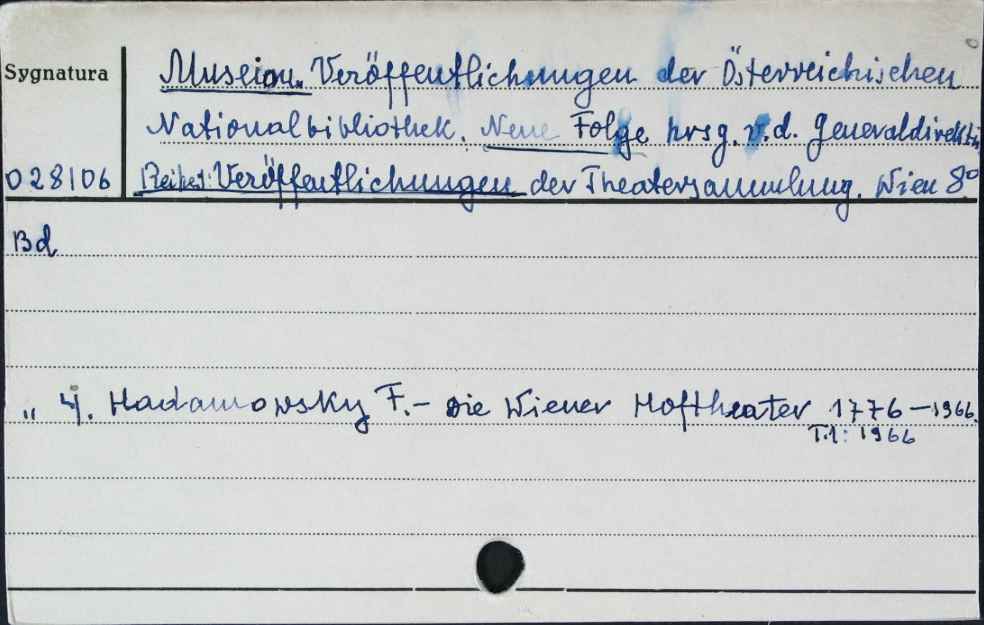 Sygnatura
Museion. Veröffentlichungen der Österreichischen
Nationalbibliothek. Neue Folge hrsg. v. d. Generaldirektion
028106 Reihe1: Veröffentlichungen der Theatersammlung. Wien 8°
Bd
" 4. Hadamowsky F. - Die Wiener Hoftheater 1776-1966.
T.1: 1966